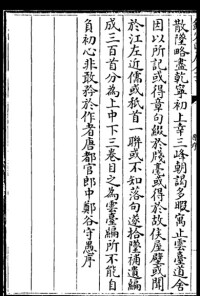 散墜略盡乾寧初上幸三峰朝謁多暇寓止雲臺道舍
因以所記或得章句綴於牋毫或得於故侯屋壁或聞
於江左近儒或秖首一聯或不知落句遂拾墜補遺編
成三百首分為上中下三卷目之為雲臺編所不能自
負初心非敢矜於作者唐都官郎中鄭谷守愚序